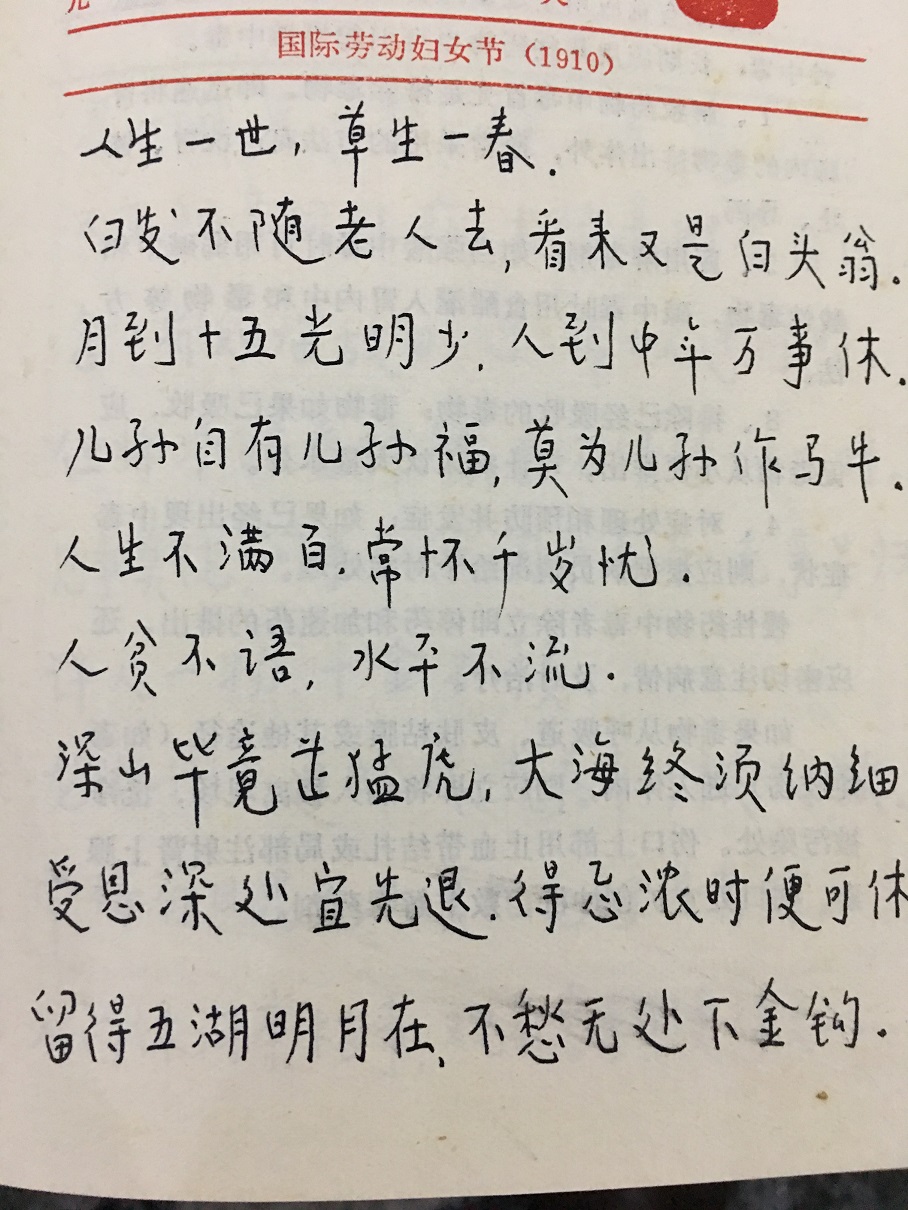 国际劳动妇女节（1910）
人生一世，草生一春．
白发不随老人去，看来又是白头翁．
月到十五光明少．人到中年万事休．
儿孙自有儿孙福，莫为儿孙作马牛．
人生不满百．常怀千岁忧．
人贫不语，水平不流．
深山毕竟芷猛虎，大海终须纳细
受恩深处宜先退．得忌浓时便可休
留得五湖明月在，不愁无处下金钩．